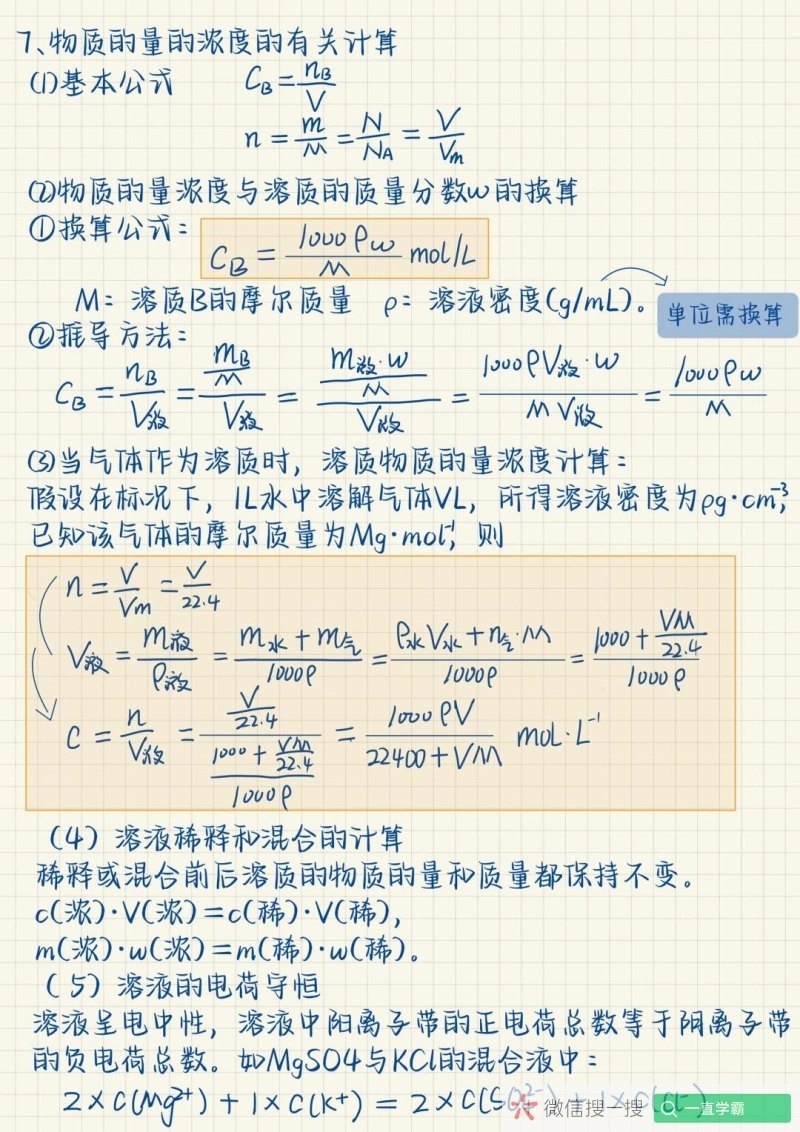 7、物质的量的浓度的有关计算
(1)基本公式 C_B = n_B/V
n = m/M = N/N_A = V/V_m
(2)物质的量浓度与溶质的质量分数w的换算
①换算公式： C_B = 1000ρw/M mol/L
M：溶质B的摩尔质量 ρ：溶液密度(g/mL)。 单位需换算
②推导方法：
C_B = n_B/V液 = (m_B/M)/V液 = (m液·w/M)/V液 = 1000ρV液·w/(M V液) = 1000ρw/M
(3)当气体作为溶质时，溶质物质的量浓度计算：
假设在标况下，1L水中溶解气体VL，所得溶液密度为ρg·cm⁻³，
已知该气体的摩尔质量为Mg·mol⁻¹，则
n = V/Vm = V/22.4
V液 = m液/ρ液 = (m水+m气)/1000ρ = (ρ水V水+n气·M)/1000ρ = (1000+VM/22.4)/1000ρ
c = n/V液 = (V/22.4)/((1000+VM/22.4)/1000ρ) = 1000ρV/(22400+VM) mol·L⁻¹
（4）溶液稀释和混合的计算
稀释或混合前后溶质的物质的量和质量都保持不变。
c(浓)·V(浓)=c(稀)·V(稀)，
m(浓)·w(浓)=m(稀)·w(稀)。
（5）溶液的电荷守恒
溶液呈电中性，溶液中阳离子带的正电荷总数等于阴离子带
的负电荷总数。如MgSO4与KCl的混合液中：
2×c(Mg²⁺)+1×c(K⁺)=2×c(SO₄²⁻)+1×c(Cl⁻)
微信搜一搜 一直学霸